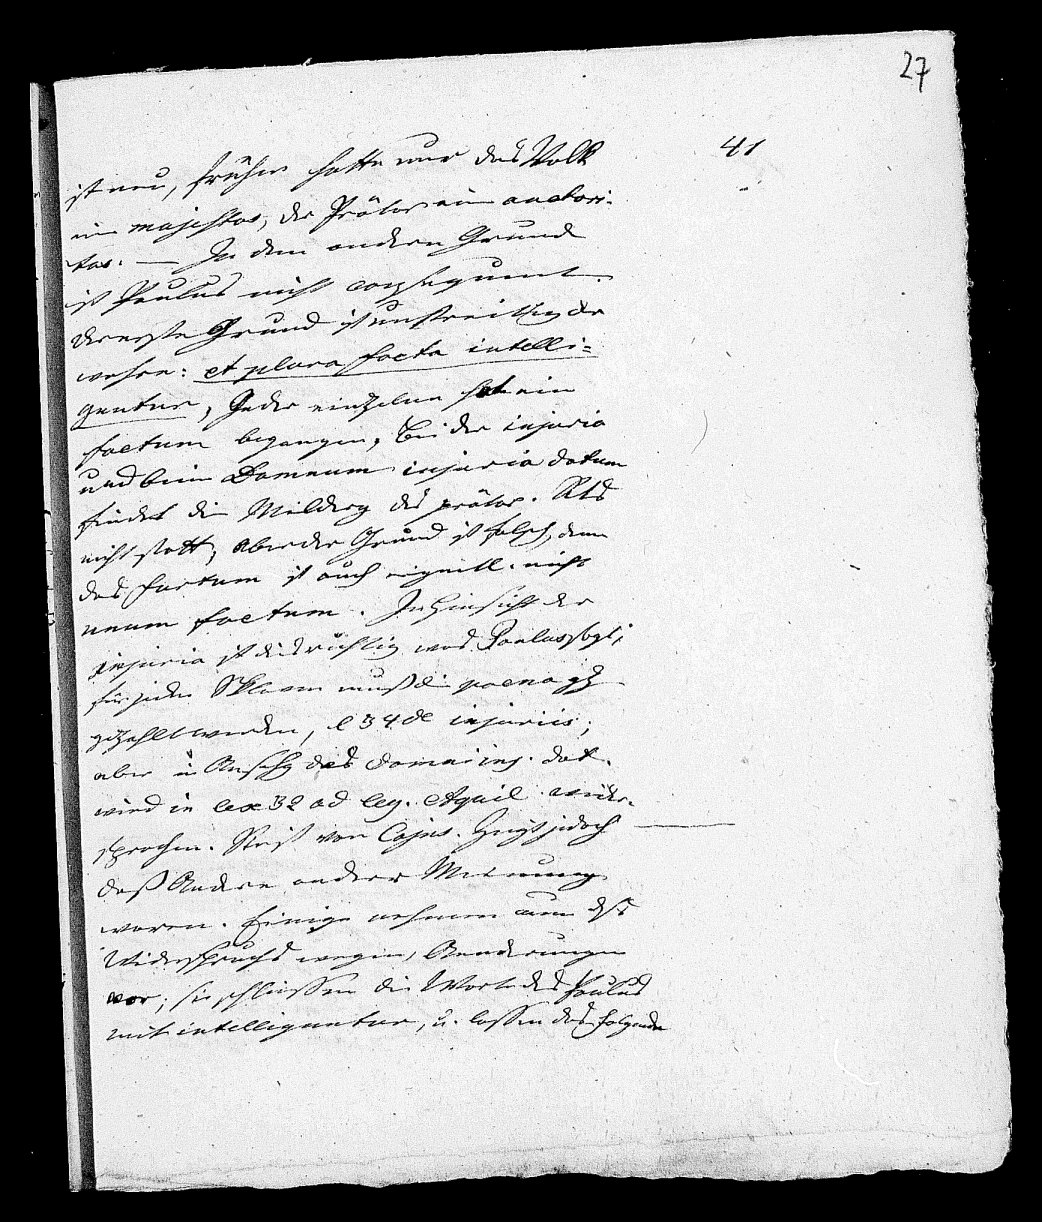 27
41
ist neu, früher hatte nur das Volk
eine majestas, der Prätor eine auctori-
tas. — In dem andern Grund
ist Paulus nicht consequent.
Der erste Grund ist unstreitig der
wahre: et plura facta intelli=
guntur, Jeder einzelne hat ein
factum begangen, bei der injuria
und beim Damnum injuria datum
findet die Milderg des prätor. Rts
nicht statt, aber der Grund ist falsch, denn
das furtum ist auch eigentl. nicht
unum factum. In Hinsicht der
injuria ist dies richtig was Paulus sagt;
für jeden Sklaven muß die poena
gezahlt werden, l 34 de injuriis;
aber in Ansehg des damni inj. dat.
wird in lex 32 ad leg. Aquil. wider-
sprochen. Steht von Cajus. Zeigt jedoch
daß Andere andrer Meinung
waren. Einige nehmen nun dss
Widerspruchs wegen, Aenderungen
vor; sie schließen die Worte des Paulus
mit intelliguntur, u. lassen das folgende